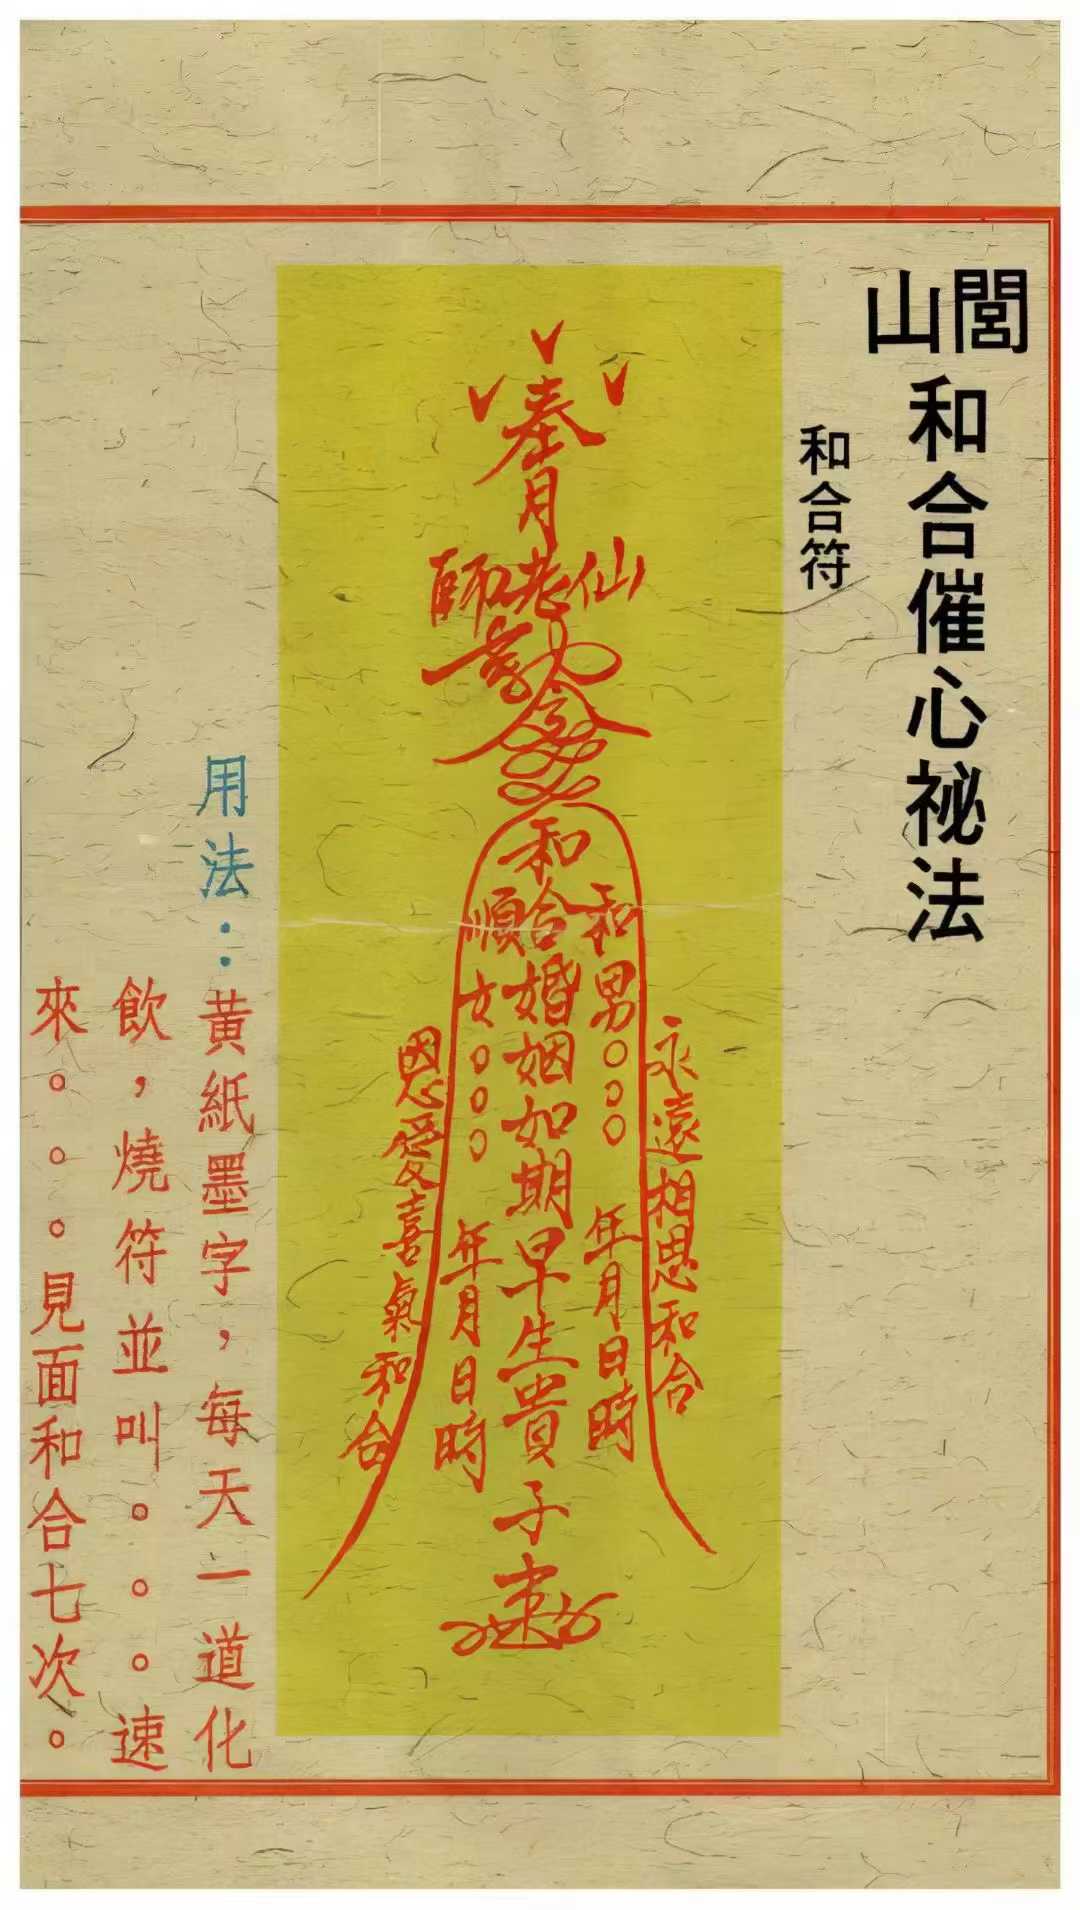 閭山
和合催心祕法
和合符
奉月
仙老師
敕令
和合婚姻如期早生貴子
和男○○○ 年月日時
順女○○○ 年月日時
永遠相思和合
恩愛喜氣和合
用法：黃紙墨字，每天一道化
飲，燒符並叫。。。。速
來。。。見面和合七次。